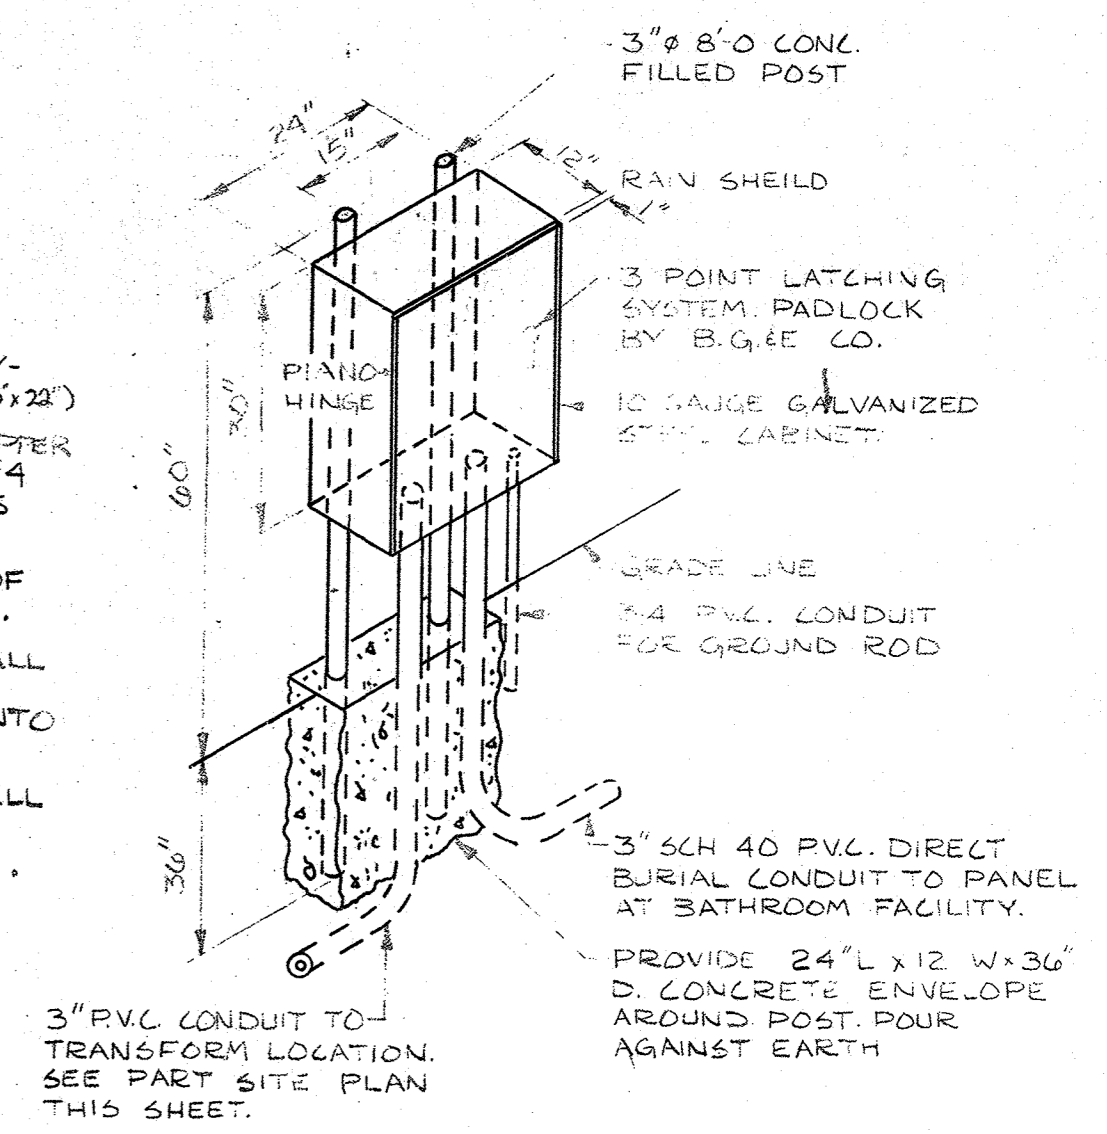 3"ø 8'-0 CONC.
FILLED POST
24"
15"
12"
RAIN SHEILD
1"
3 POINT LATCHING
SYSTEM. PADLOCK
BY B.G.&E CO.
PIANO
HINGE
10 GAUGE GALVANIZED
STEEL CABINET.
30"
60"
x 22")
4
OF
ALL
INTO
ALL
GRADE LINE
3/4 P.V.C. CONDUIT
FOR GROUND ROD
36"
3" SCH 40 P.V.C. DIRECT
BURIAL CONDUIT TO PANEL
AT BATHROOM FACILITY.
PROVIDE 24"L x 12 W x 36"
D. CONCRETE ENVELOPE
AROUND POST. POUR
AGAINST EARTH
3" P.V.C. CONDUIT TO
TRANSFORM LOCATION.
SEE PART SITE PLAN
THIS SHEET.